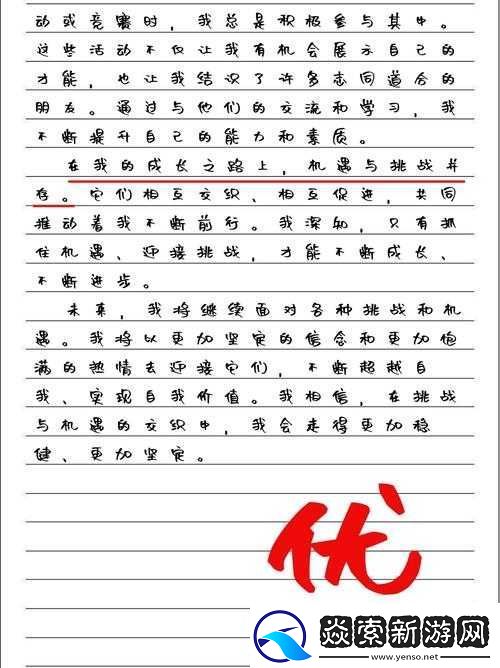 动或竞赛时，我总是积极参与其中。
这些活动不仅让我有机会展示自己的
才能，也让我结识了许多志同道合的
朋友。通过与他们的交流和学习，我
不断提升自己的能力和素质。
在我的成长之路上，机遇与挑战并
存。它们相互交织、相互促进，共同
推动着我不断前行。我深知，只有抓
住机遇、迎接挑战，才能不断成长、
不断进步。
未来，我将继续面对各种挑战和机
遇。我将以更加坚定的信念和更加饱
满的热情去迎接它们，不断超越自
我、实现自我价值。我相信，在挑战
与机遇的交织中，我会走得更加稳
健、更加坚定。
优
焱索新游网
www.yenso.net